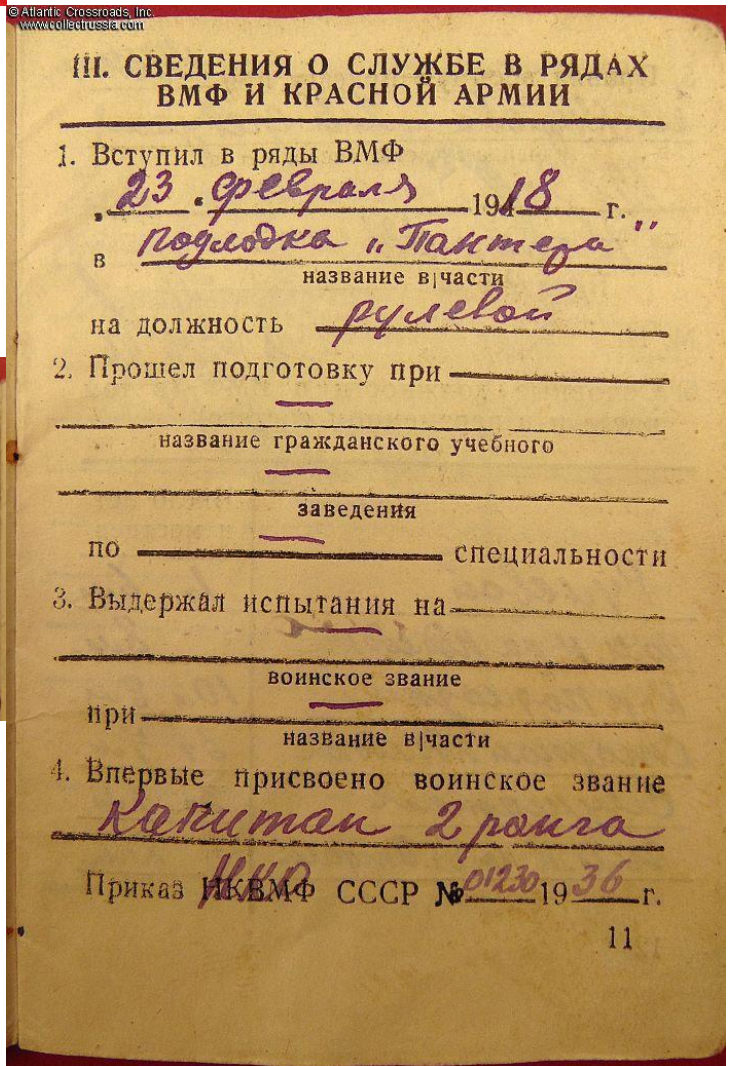 © Atlantic Crossroads, Inc.
www.collectrussia.com
III. СВЕДЕНИЯ О СЛУЖБЕ В РЯДАХ
ВМФ И КРАСНОЙ АРМИИ
1. Вступил в ряды ВМФ
„23" февраля 1918 г.
в подлодка „Пантера"
название в|части
на должность рулевой
2. Прошел подготовку при —
название гражданского учебного
—
заведения
по — специальности
3. Выдержал испытания на —
воинское звание
при —
название в|части
4. Впервые присвоено воинское звание
Капитан 2 ранга
Приказ НКВМФ СССР № 01230 1936 г.
11